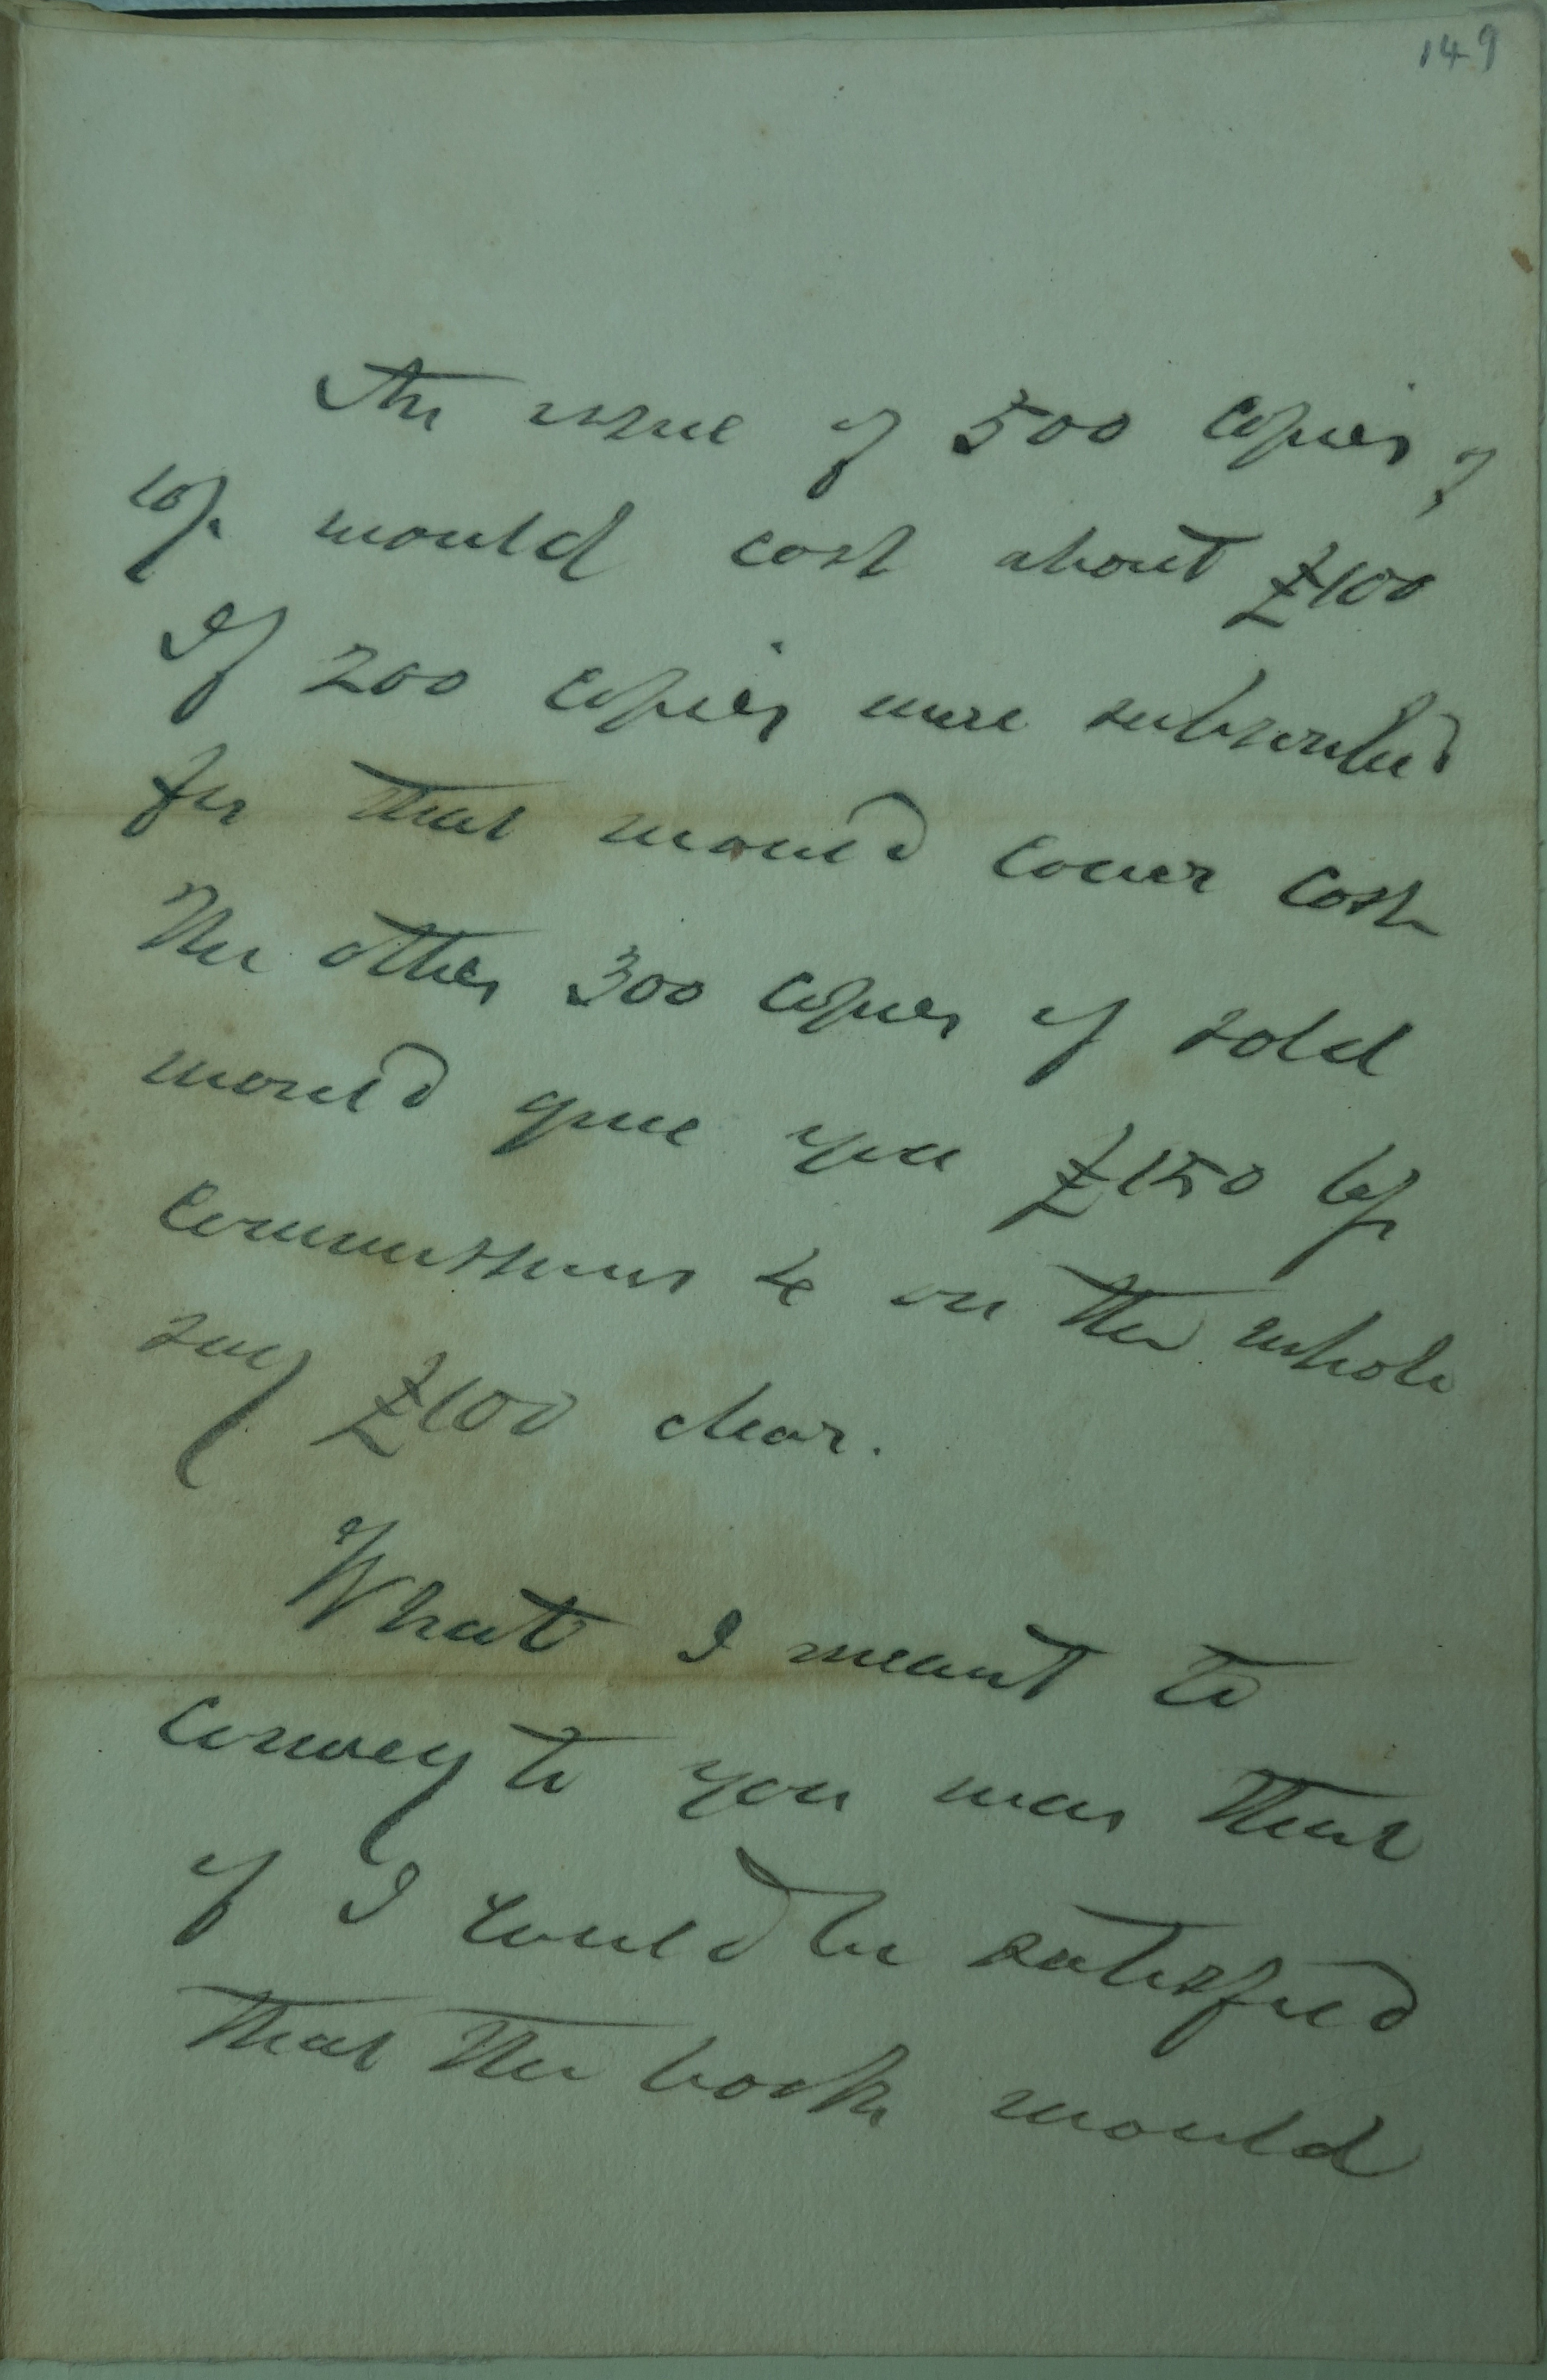 149
An issue of 500 copies @
10/- would cost about £100
If 200 copies were subscribed
for that would cover cost
The other 300 copies if sold
would give you £150 less
Commissions &c on the whole
say £100 clear.
What I meant to
convey to you was that
if I could be satisfied
that the book would